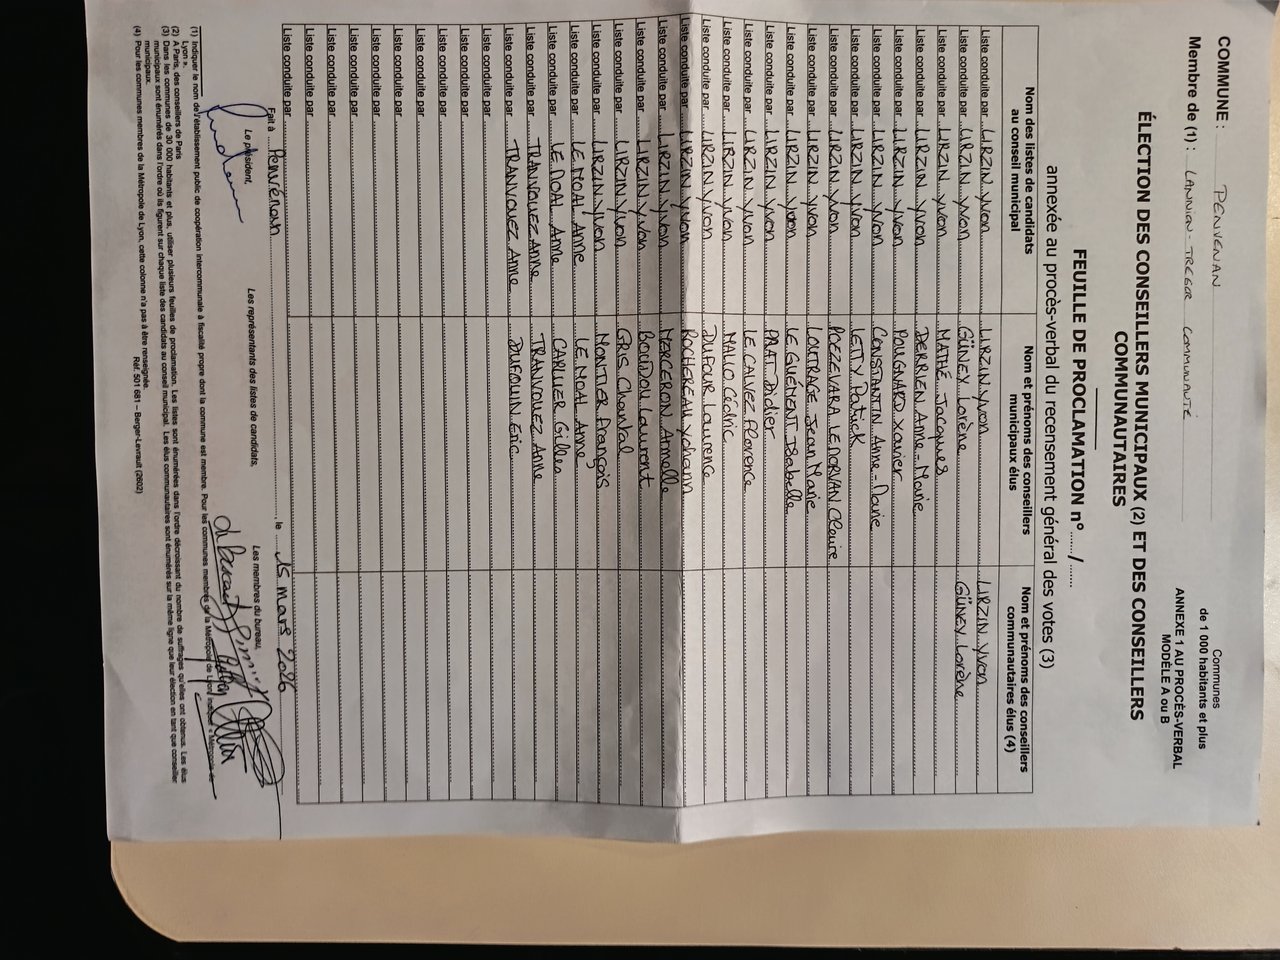 COMMUNE : PENVENAN
Membre de (1) : LANNION-TREGOR COMMUNAUTÉ
Communes
de 1 000 habitants et plus
ANNEXE 1 AU PROCÈS-VERBAL
MODÈLE A ou B
ÉLECTION DES CONSEILLERS MUNICIPAUX (2) ET DES CONSEILLERS
COMMUNAUTAIRES
FEUILLE DE PROCLAMATION n° ....../......
annexée au procès-verbal du recensement général des votes (3)
Nom des listes de candidats au conseil municipal | Nom et prénoms des conseillers municipaux élus | Nom et prénoms des conseillers communautaires élus (4)
Liste conduite par LIRZIN Yvon | LIRZIN Yvon | LIRZIN Yvon
Liste conduite par LIRZIN Yvon | GÜNEY Lorène | GÜNEY Lorène
Liste conduite par LIRZIN Yvon | MATHÉ Jacques
Liste conduite par LIRZIN Yvon | DERRIEN Anne-Marie
Liste conduite par LIRZIN Yvon | POUGNARD Xavier
Liste conduite par LIRZIN Yvon | CONSTANTIN Anne-Marie
Liste conduite par LIRZIN Yvon | LETY Patrick
Liste conduite par LIRZIN Yvon | POZZEVARA LE MORVAN Claire
Liste conduite par LIRZIN Yvon | LOUTRAGE Jean Marie
Liste conduite par LIRZIN Yvon | LE GUÉMENT Isabelle
Liste conduite par LIRZIN Yvon | PRAT Didier
Liste conduite par LIRZIN Yvon | LE CALVEZ Florence
Liste conduite par LIRZIN Yvon | MALLO Cédric
Liste conduite par LIRZIN Yvon | DUFOUR Laurence
Liste conduite par LIRZIN Yvon | ROCHEREAU Yohann
Liste conduite par LIRZIN Yvon | MERCERON Armelle
Liste conduite par LIRZIN Yvon | BOUDOU Laurent
Liste conduite par LIRZIN Yvon | GRIS Chantal
Liste conduite par LIRZIN Yvon | MONTIER François
Liste conduite par LE MOAL Anne | LE MOAL Anne
Liste conduite par LE MOAL Anne | CARLUER Gilles
Liste conduite par TRANVOUEZ Anne | TRANVOUEZ Anne
Liste conduite par TRANVOUEZ Anne | DUFOUIN Eric
Liste conduite par
Liste conduite par
Liste conduite par
Liste conduite par
Liste conduite par
Liste conduite par
Liste conduite par
Liste conduite par
Liste conduite par
Liste conduite par
Liste conduite par
Fait à Penvénan, le 15 mars 2026
Le président, Les représentants des listes de candidats, Les membres du bureau,
(1) Indiquer le nom de l'établissement public de coopération intercommunale à fiscalité propre dont la commune est membre. Pour les communes membres de la Métropole de Lyon, indiquer « Métropole de
Lyon ».
(2) A Paris, des conseillers de Paris
(3) Dans les communes de 30 000 habitants et plus, utiliser plusieurs feuilles de proclamation. Les listes sont énumérées dans l'ordre décroissant du nombre de suffrages qu'elles ont obtenus. Les élus
municipaux sont énumérés dans l'ordre où ils figurent sur chaque liste des candidats au conseil municipal. Les élus communautaires sont énumérés sur la même ligne que leur élection en tant que conseiller
municipaux.
(4) Pour les communes membres de la Métropole de Lyon, cette colonne n'a pas à être renseignée.
Réf. 501 681 – Berger-Levrault (2602)